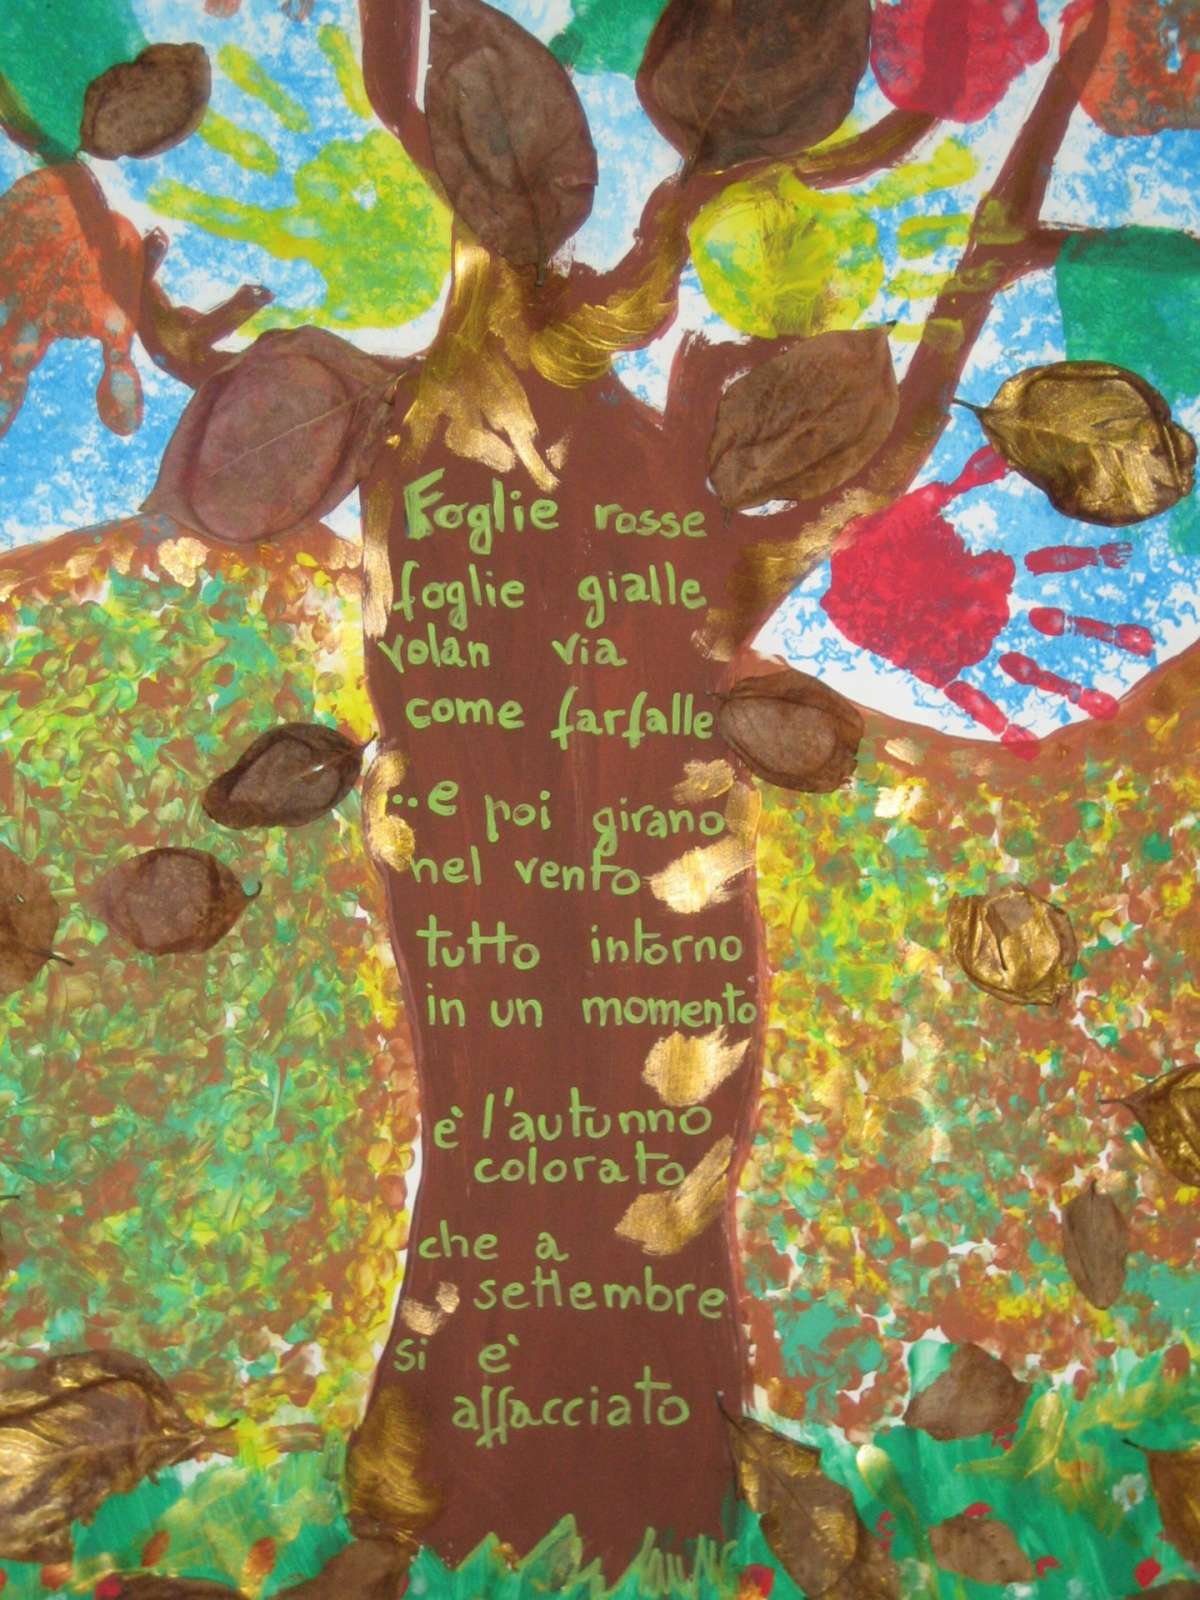 Foglie rosse
foglie gialle
volan via
come farfalle
..e poi girano
nel vento
tutto intorno
in un momento
è l'autunno
colorato
che a
settembre
si è
affacciato